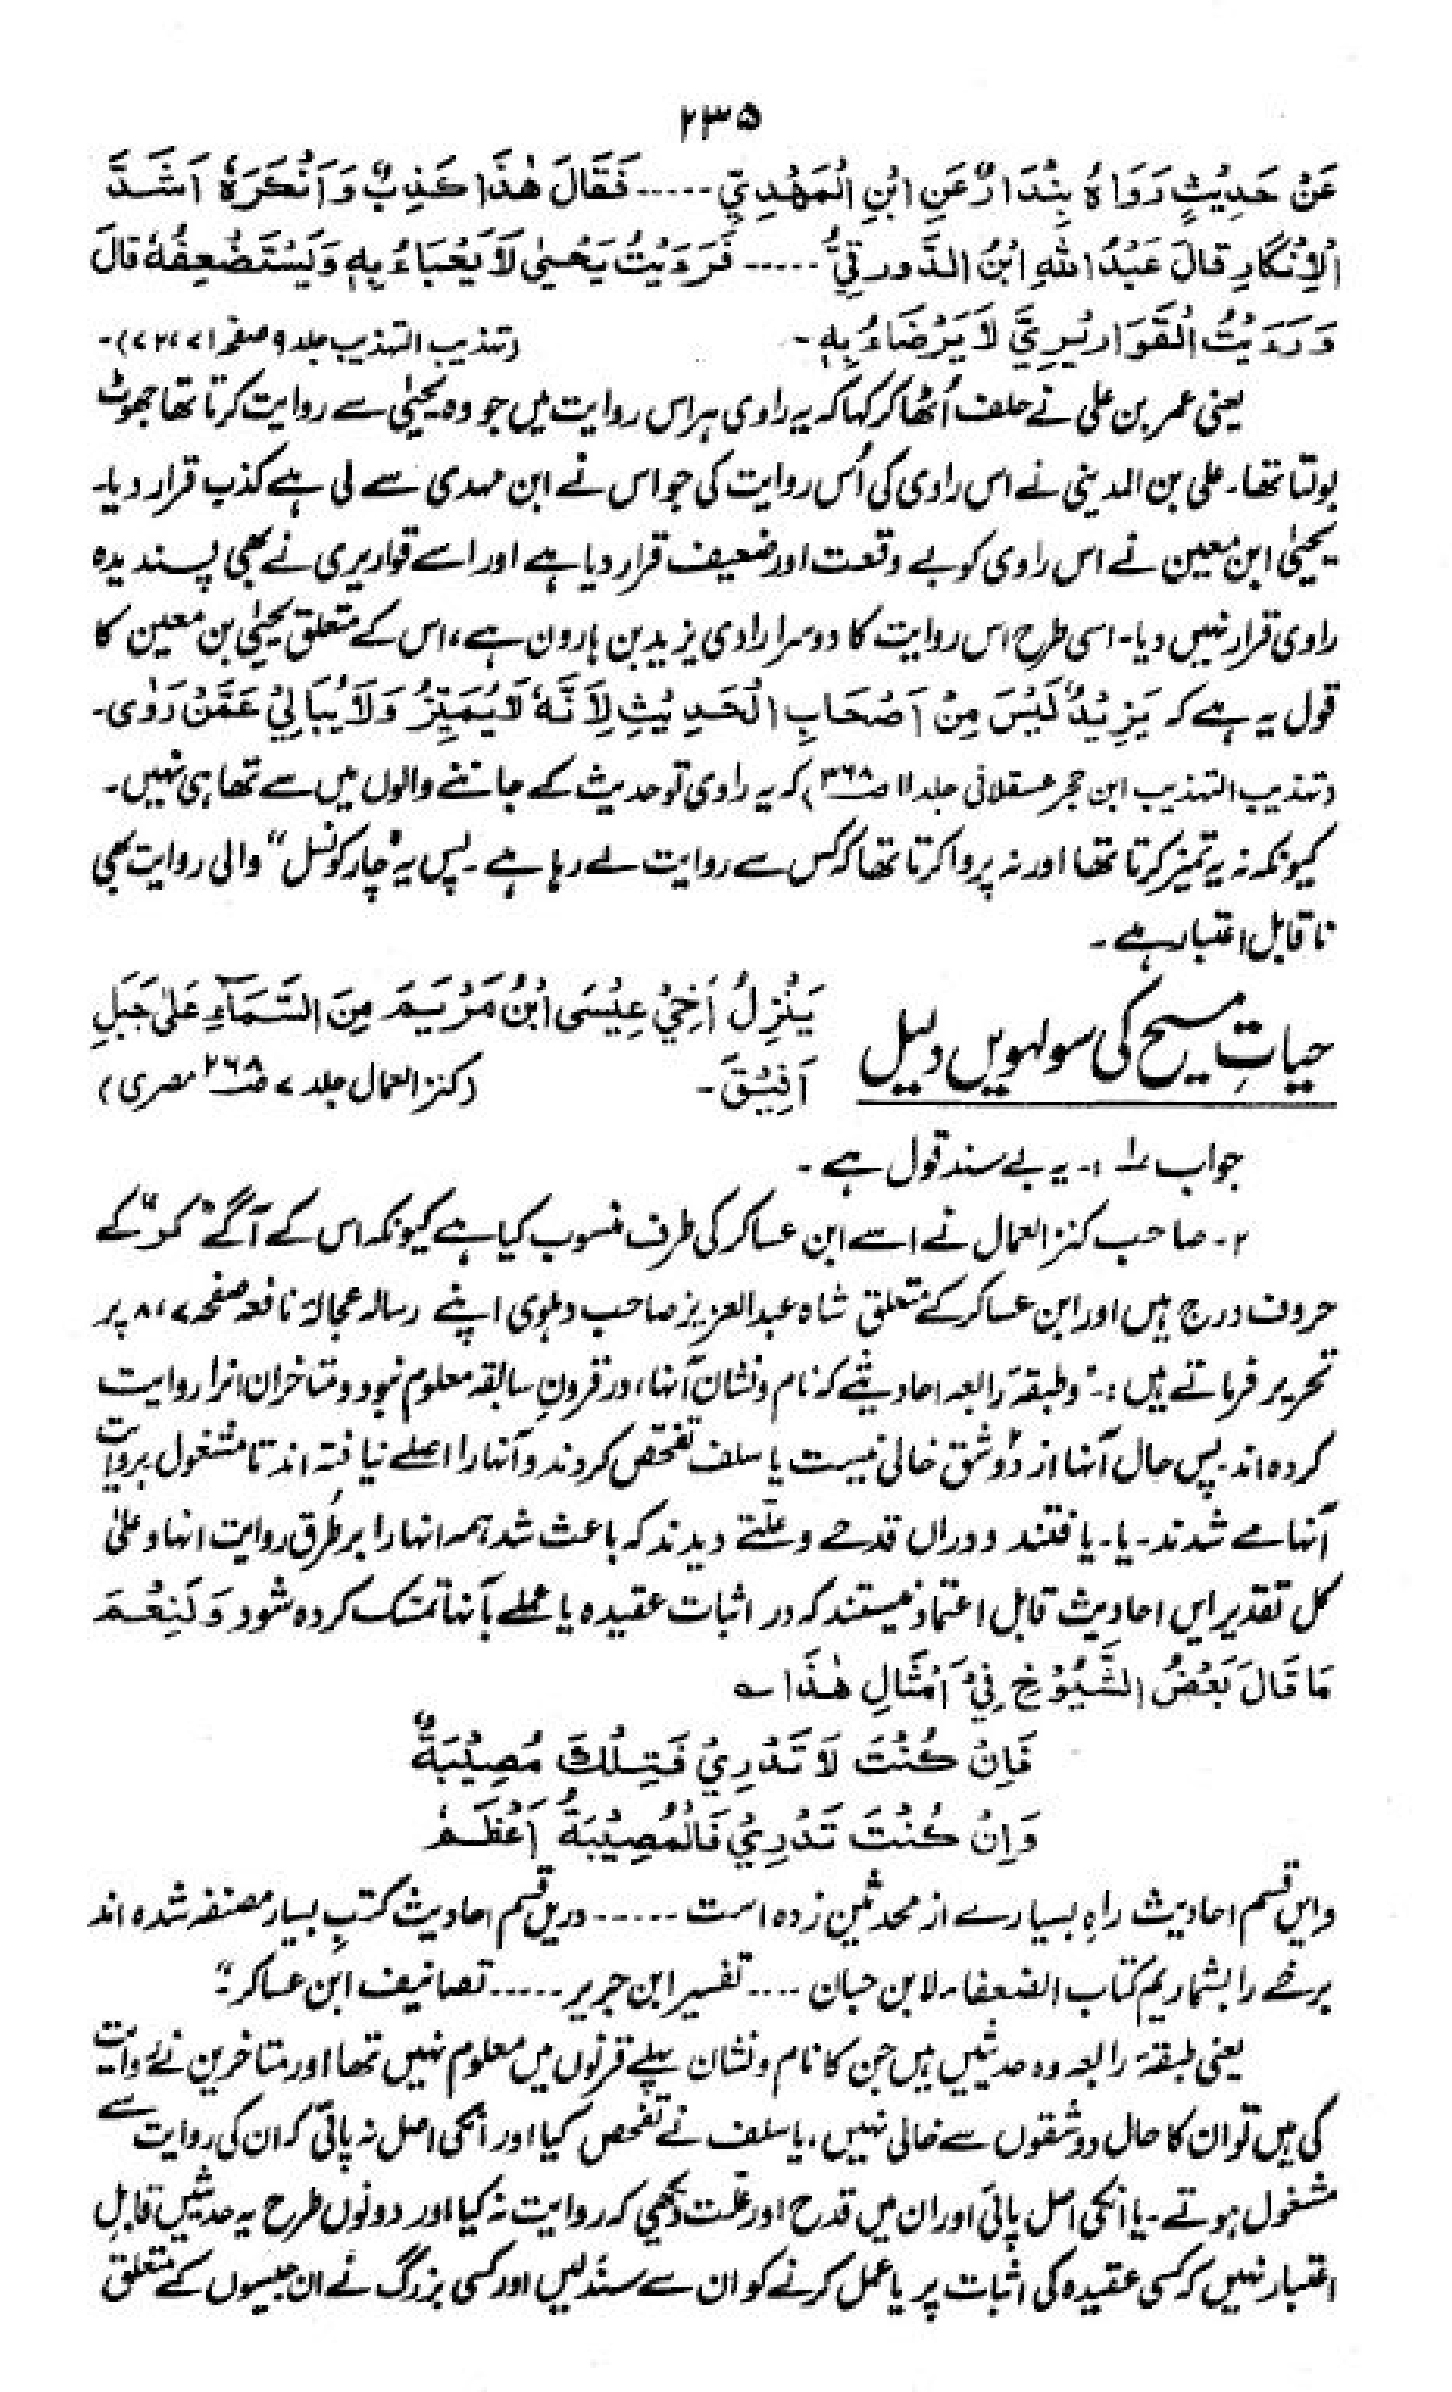 ۲۳۵
عَنْ حَدِيْثٍ رَوَاهُ بِنْدَارٌ عَنِ ابْنِ الْمَهْدِيِّ ----- فَقَالَ هٰذَا كَذِبٌ وَاَنْكَرَهٗ اَشَدَّ
الْاِنْكَارِ قَالَ عَبْدُ اللّٰهِ ابْنُ الدَّورَقِيُّ ----- فَرَءَيْتُ يَحْيٰى لَا يَعْبَاءُ بِهٖ وَيَسْتَضْعِفُهٗ قَالَ
وَرَءَيْتُ الْقَوَارِيْرِيَّ لَا يَرْضَاءُ بِهٖ - (تہذیب التہذیب جلد ۹ صفحہ ۷۱، ۷۲)-
یعنی عمر بن علی نے حلف اُٹھا کر کہا کہ یہ راوی ہر اس روایت میں جو وہ یحیٰی سے روایت کرتا تھا جھوٹ
بولتا تھا۔ علی بن المدینی نے اس راوی کی اُس روایت کی جو اس نے ابن مہدی سے لی ہے کذب قرار دیا۔
یحییٰ ابن معین نے اس راوی کو بے وقعت اور ضعیف قرار دیا ہے اور اسے قواریری نے بھی پسندیدہ
راوی قرار نہیں دیا۔ اسی طرح اس روایت کا دوسرا راوی یزید بن ہارون ہے، اس کے متعلق یحیٰی بن معین کا
قول یہ ہے کہ يَزِيْدُ لَيْسَ مِنْ اَصْحَابِ الْحَدِيْثِ لِاَنَّهٗ لَا يُمَيِّزُ وَلَا يُبَالِيْ عَمَّنْ رَوٰى۔
(تہذیب التہذیب ابن حجر عسقلانی جلد ۱۱ صـ۳۶۸) کہ یہ راوی تو حدیث کے جاننے والوں میں سے تھا ہی نہیں۔
کیونکہ نہ یہ تمیز کرتا تھا اور نہ پروا کرتا تھا کہ کس سے روایت لے رہا ہے۔ پس یہ "چار کونسل" والی روایت بھی
ناقابل اعتبار ہے۔
حیاتِ مسیح کی سولہویں دلیل
يَنْزِلُ اَخِيْ عِيْسَى ابْنُ مَرْيَمَ مِنَ السَّمَآءِ عَلٰى جَبَلِ
اَفِيْقَ- (کنز العمال جلد ۷ صـ۲۶۸ مصری)
جواب ۱ :- یہ بے سند قول ہے۔
۲- صاحب کنز العمال نے اسے ابن عساکر کی طرف منسوب کیا ہے کیونکہ اس کے آگے "کر" کے
حروف درج ہیں اور ابن عساکر کے متعلق شاہ عبدالعزیز صاحب دہلوی اپنے رسالہ عجالۂ نافعہ صفحہ ۷، ۸ پر
تحریر فرماتے ہیں :- "وطبقۂ رابعہ احادیثے کہ نام و نشان آنہا، در قرونِ سابقہ معلوم نبود و متاخران انرا روایت
کردہ اند۔ پس حال آنہا از دو شق خالی نیست یا سلف تفحص کردند و آنہا را اصلے نیافتہ اند تا مشغول بروایت
آنہا مے شدند۔ یا۔ یافتند و دراں قدحے و علّتے دیدند کہ باعث شد ہمہ انہا را بر طَرقِ روایت انہا وعلیٰ
کل تقدیر ایں احادیث قابل اعتماد نیستند کہ در اثبات عقیدہ یا عملے بآنہا تمسک کردہ شود وَلَنِعْمَ
مَا قَالَ بَعْضُ الشُّيُوْخِ فِيْ اَمْثَالِ هٰذَا ؎
فَاِنْ كُنْتَ لَا تَدْرِيْ فَتِلْكَ مُصِيْبَةٌ
وَاِنْ كُنْتَ تَدْرِيْ فَالْمُصِيْبَةُ اَعْظَمُ
وایں قسم احادیث راہِ بسیارے از محدثین زدہ است ----- دریں قسم احادیث کتبِ بسیار مصنفہ شدہ اند
برخے را بشماریم کتاب الضعفاء لابن حبان .... تفسیر ابن جریر ----- تصانیف ابن عساکر۔"
یعنی طبقۂ رابعہ وہ حدیثیں ہیں جن کا نام و نشان پہلے قرنوں میں معلوم نہیں تھا اور متاخرین نے روایت
کی ہیں تو ان کا حال دو شقوں سے خالی نہیں، یا سلف نے تفحص کیا اور انکی اصل نہ پائی کہ ان کی روایت سے
مشغول ہوتے۔ یا انکی اصل پائی اور ان میں قدح اور علّت دیکھی کہ روایت نہ کیا اور دونوں طرح یہ حدیثیں قابلِ
اعتبار نہیں کہ کسی عقیدہ کی اثبات پر یا عمل کرنے کو ان سے سند لیں اور کسی بزرگ نے ان جیسوں کے متعلق